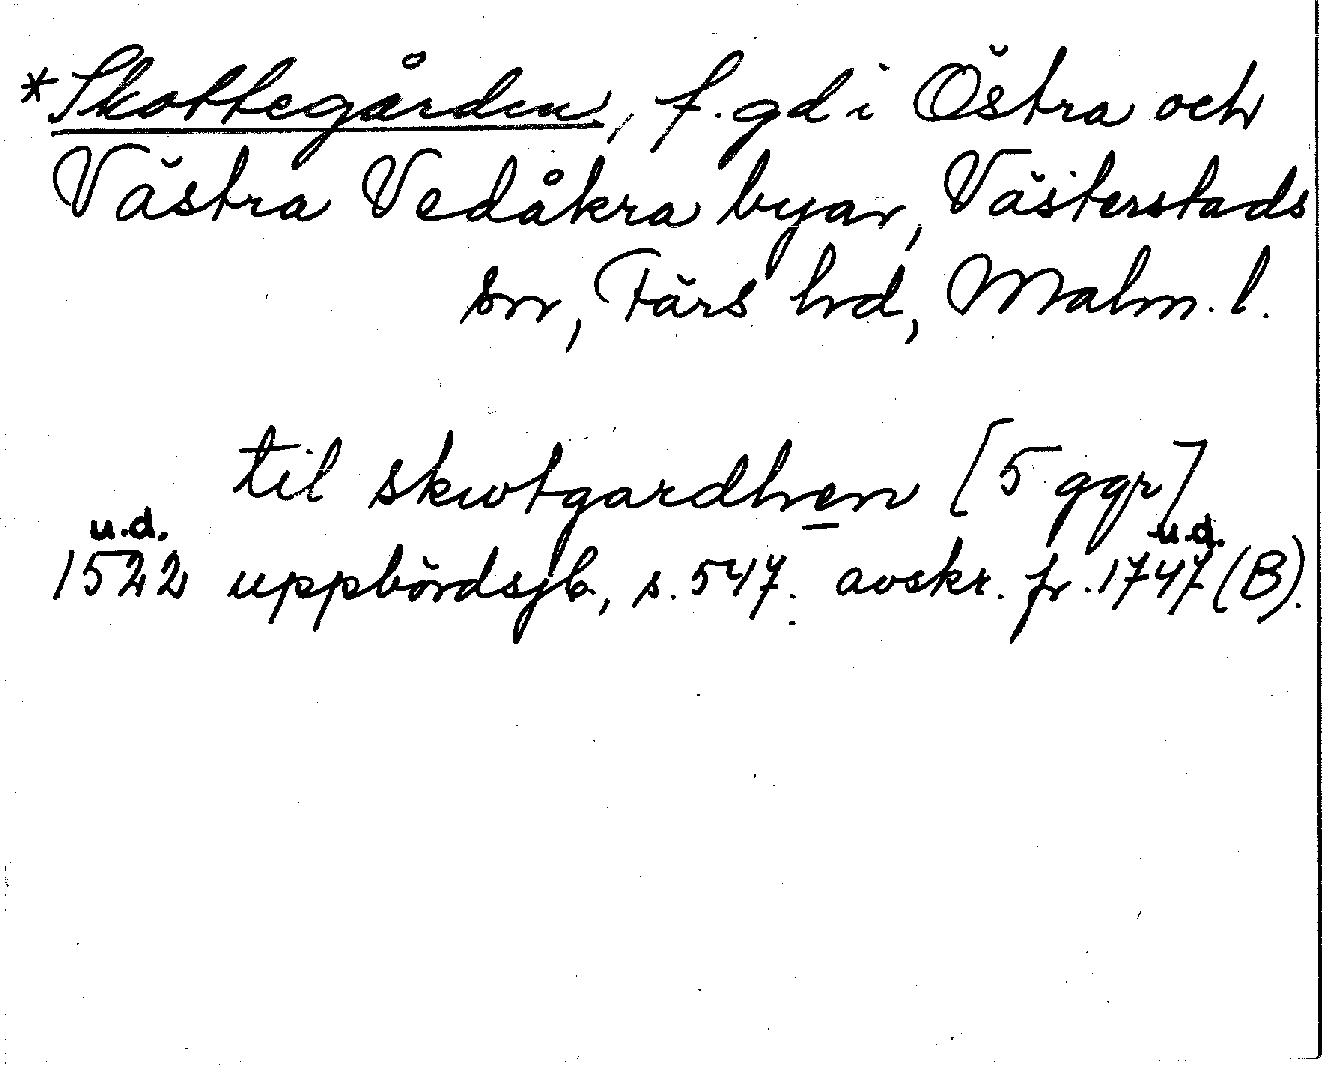 *Skottegården, f. gd i Östra och
Västra Vedåkra byar, Västerstads
sn, Färs hd, Malm. l.
til skwtgardhen [5 ggr]
u.d. u.d.
1522 uppbördsjb, s. 547. avskr. fr. 1747 (B).